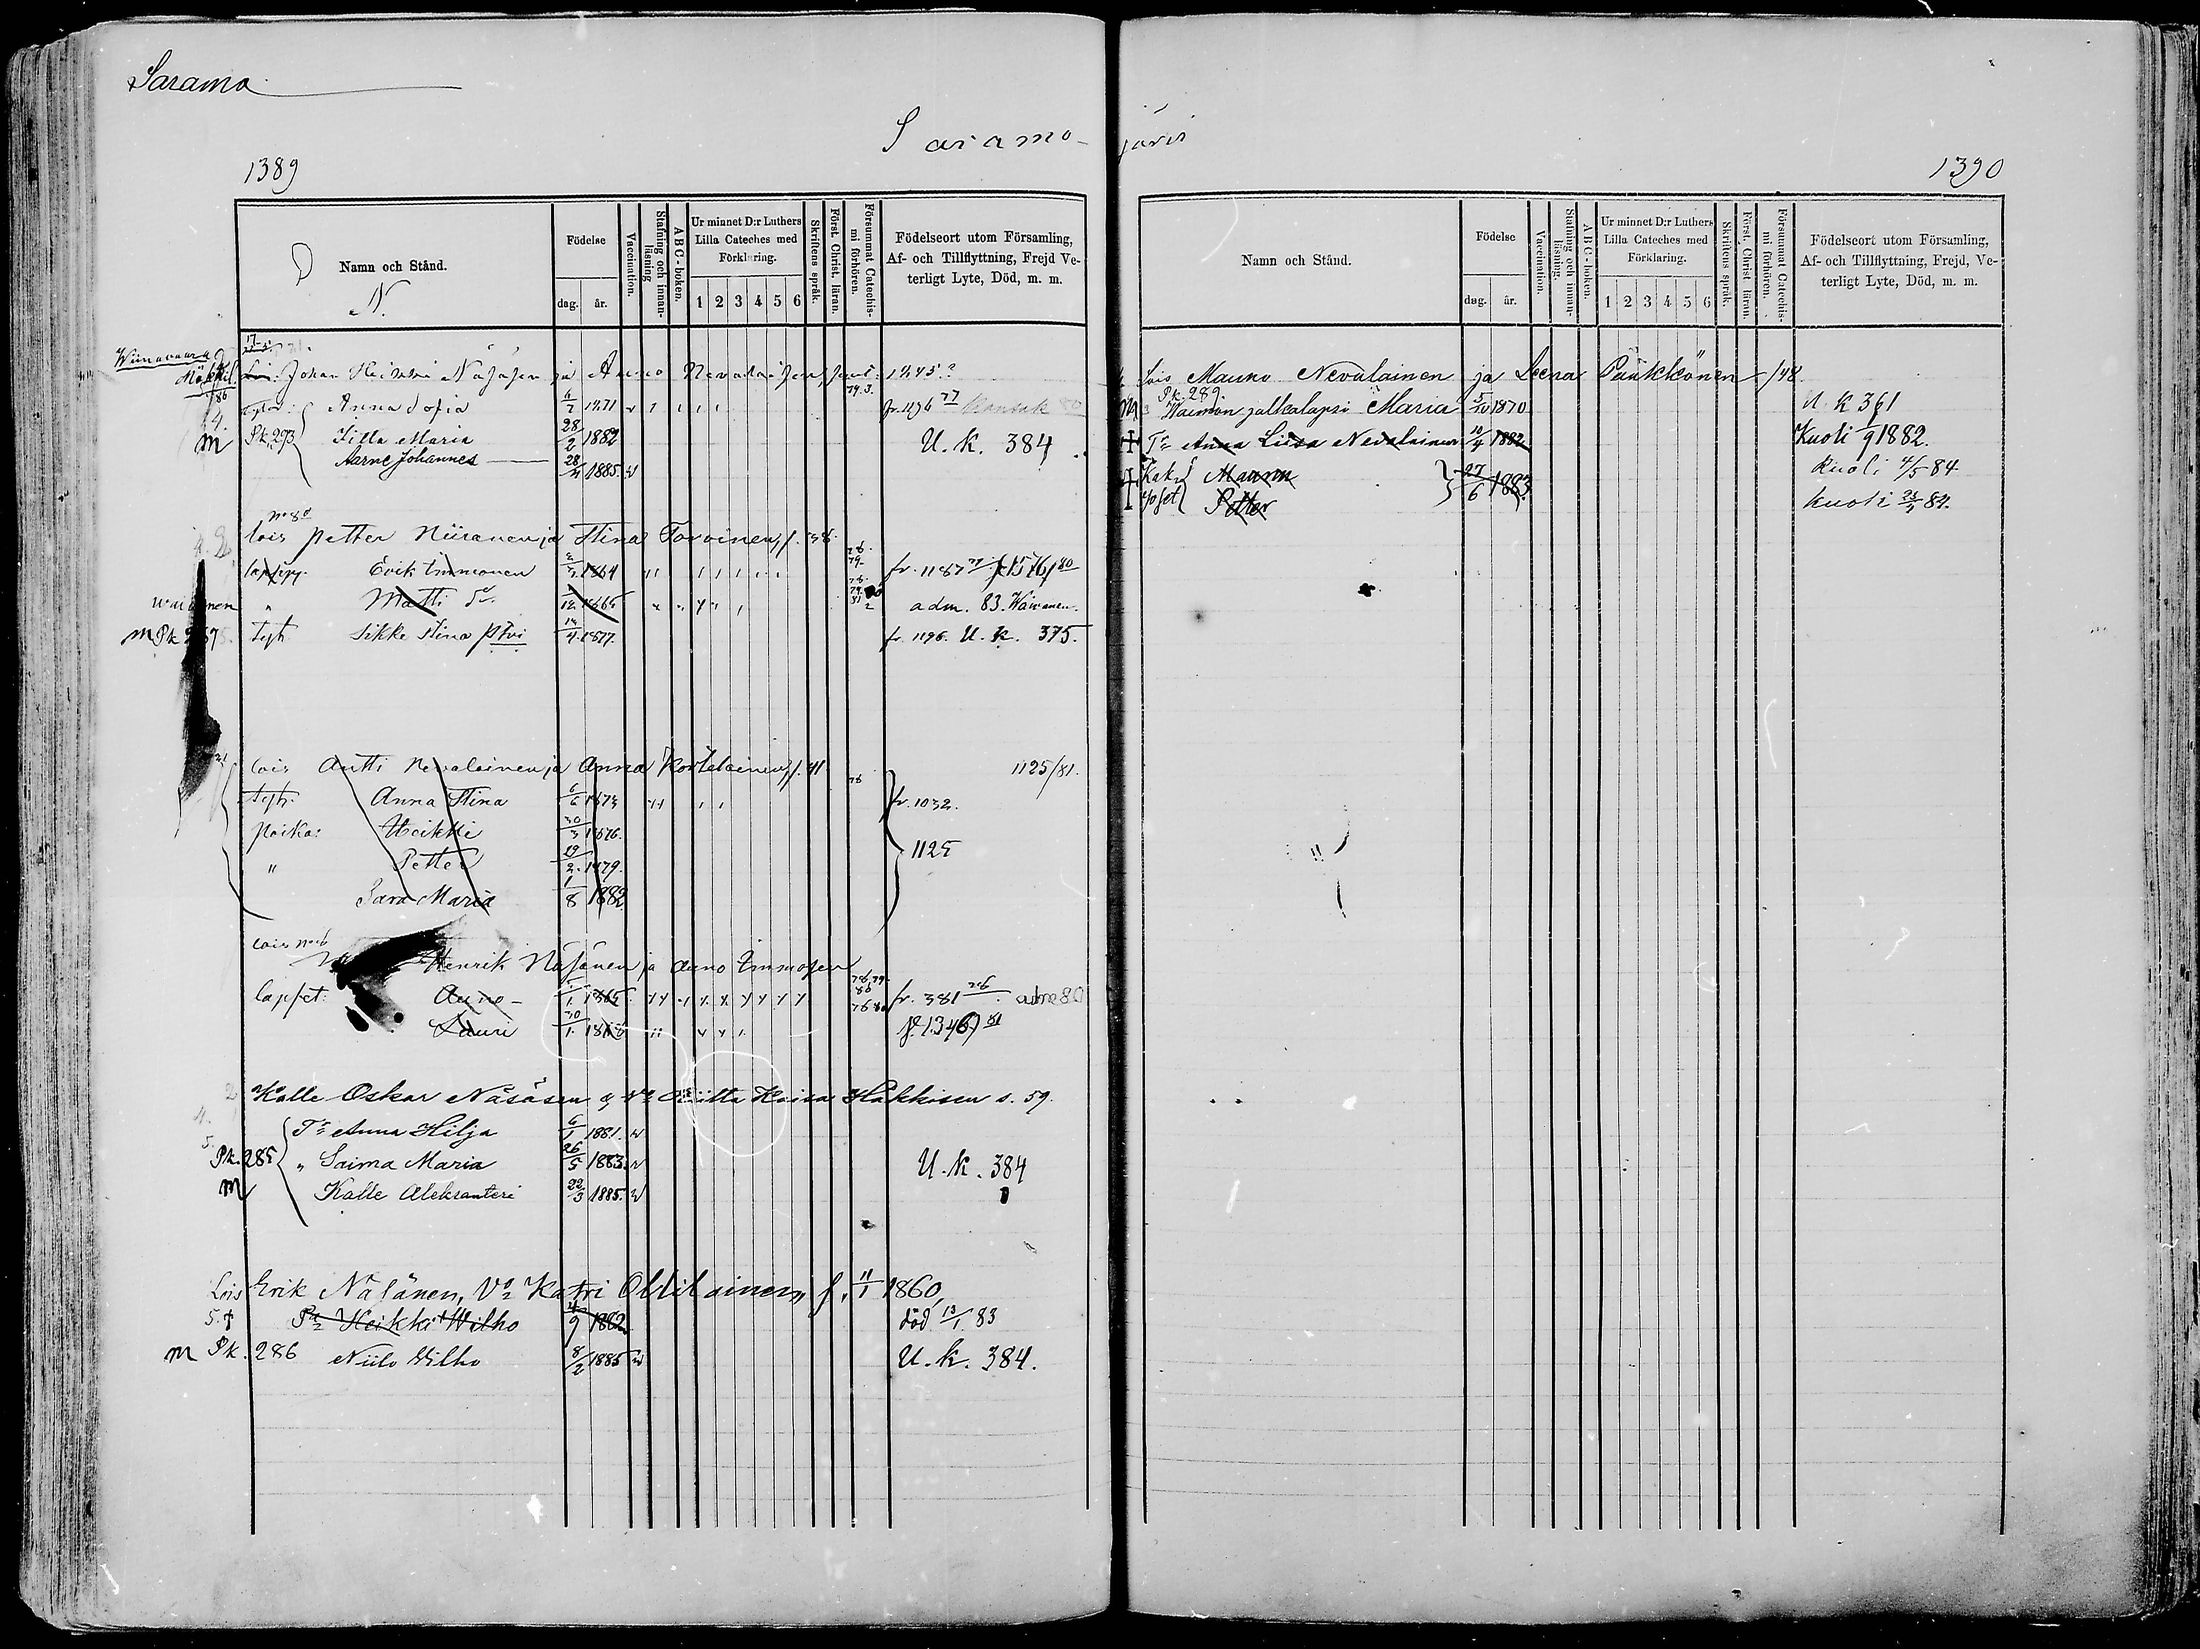 Saramo
Saramo-järvi
1389
1390
Namn och Stånd.
N.
Födelse
dag.
år.
Vaccination.
Stafning och innanläsning
A B C-boken.
Ur minnet D:r Luthers Lilla Cateches med Förklaring.
1 2 3 4 5 6
Skriftens språk.
Först. Christ. läran.
Försummat Catechismi förhören.
Födelseort utom Församling, Af- och Tillflyttning, Frejd Veterligt Lyte, Död, m. m.
Wiinavaara
Johan Heikki Näsäsen ja Anna Nevalaisen 1845?
Anna Sofia 6/7 1871 fr. 1196 77
m Pk. 293 Hilla Maria 28/2 1882 U. k. 384
Aarne Johannes 1885
lois Petter Niiranen ja Stina Torvinen, f. 38.
Erik Immonen 1864 fr. 1187 f. 1576/80
Matti d:o 1865 adm. 83. Waivanen.
m Pk Tyt. Sikke Stina 14/4 1877. fr. 1196. U. k. 375.
lois Antti Nevalainen ja Anna Kortelainen, f. 41. 1125/81.
Tytr. Anna Stina 6/6 1873 fr. 1032.
poika: Heikki 30/3 1876.
" Petter 19/2 1879. 1125
Sara Maria 1/8 1882
lois Henrik Näsänen ja Anno Immosen
lapset: Anno 1865 fr. 381 adm 80
Lauri 30/1 1868 f. 1346/81
Kalle Oskar Näsäsen ja V:o Riitta Kaisa Hakkisen s. 59.
T:r Anna Hilja 6/1 1881.
Pk. 285 " Saima Maria 26/5 1883 U. k. 384
m Kalle Aleksanteri 22/3 1885.
Lois Erik Näsänen, V:o Katri Ollilainen, f. 11/1 1860,
5. † P:a Heikki Wilho 4/9 1882 död 13/1 83
m Pk. 286 Niilo Wilho 8/2 1885 U. k. 384.
Namn och Stånd.
Födelse
dag.
år.
Vaccination.
Stafning och innanläsning.
A B C-boken.
Ur minnet D:r Luthers Lilla Cateches med Förklaring.
1 2 3 4 5 6
Skriftens språk.
Först. Christ läran.
Försummat Catechismi förhören.
Födelseort utom Församling, Af- och Tillflyttning, Frejd, Veterligt Lyte, Död, m. m.
Lois Mauno Nevalainen ja Leena Pääkkönen /48.
Pk. 289.
m Waimon jalkalapsi Maria 1870 U. K 361
† T:r Anna Liisa Nevalainen 10/4 1882 Kuoli /9 1882.
† Kak- Maunu 27/6 1883 kuoli 4/5 84
† Petter kuoli 84.